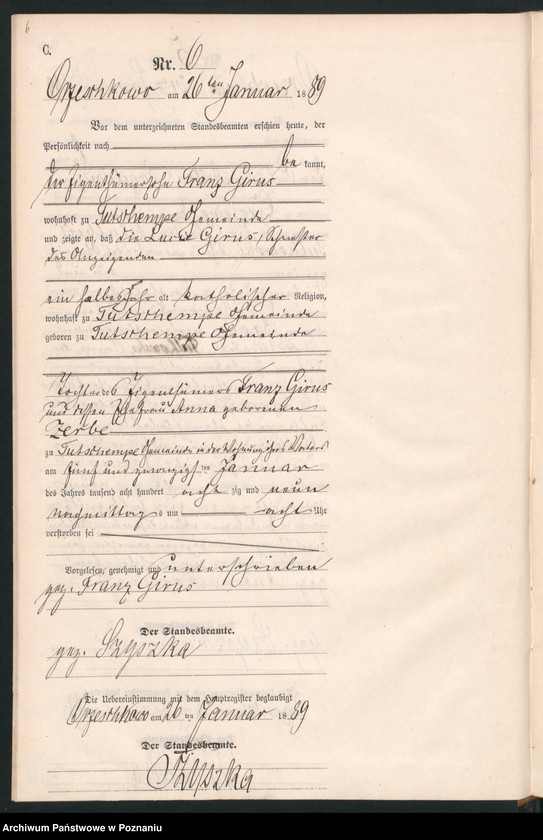 6
C.
Nr. 6
Orzeschkowo am 26 ten Januar 1889
Vor dem unterzeichneten Standesbeamten erschien heute, der
Persönlichkeit nach
be kannt,
der Eigenthümersohn Franz Girus
wohnhaft zu Tutschempe Gemeinde
und zeigte an, daß die Lucie Girus, Schwester
des Anzeigenden
ein halbes Jahr alt katholischer Religion,
wohnhaft zu Tutschempe Gemeinde
geboren zu Tutschempe Gemeinde
Tochter des Eigenthümers Franz Girus
und dessen Ehefrau Anna geborenen
Zerbe
zu Tutschempe Gemeinde in der Wohnung ihres Vaters
am fünf und zwanzigsten Januar
des Jahres tausend acht hundert acht zig und neun
nachmittags um acht Uhr
verstorben sei
Vorgelesen, genehmigt und unterschrieben
gez. Franz Girus
Der Standesbeamte.
gez. Szyszka
Die Uebereinstimmung mit dem Hauptregister beglaubigt
Orzeschkowo am 26 ten Januar 1889
Der Standesbeamte.
Szyszka
Archiwum Państwowe w Poznaniu